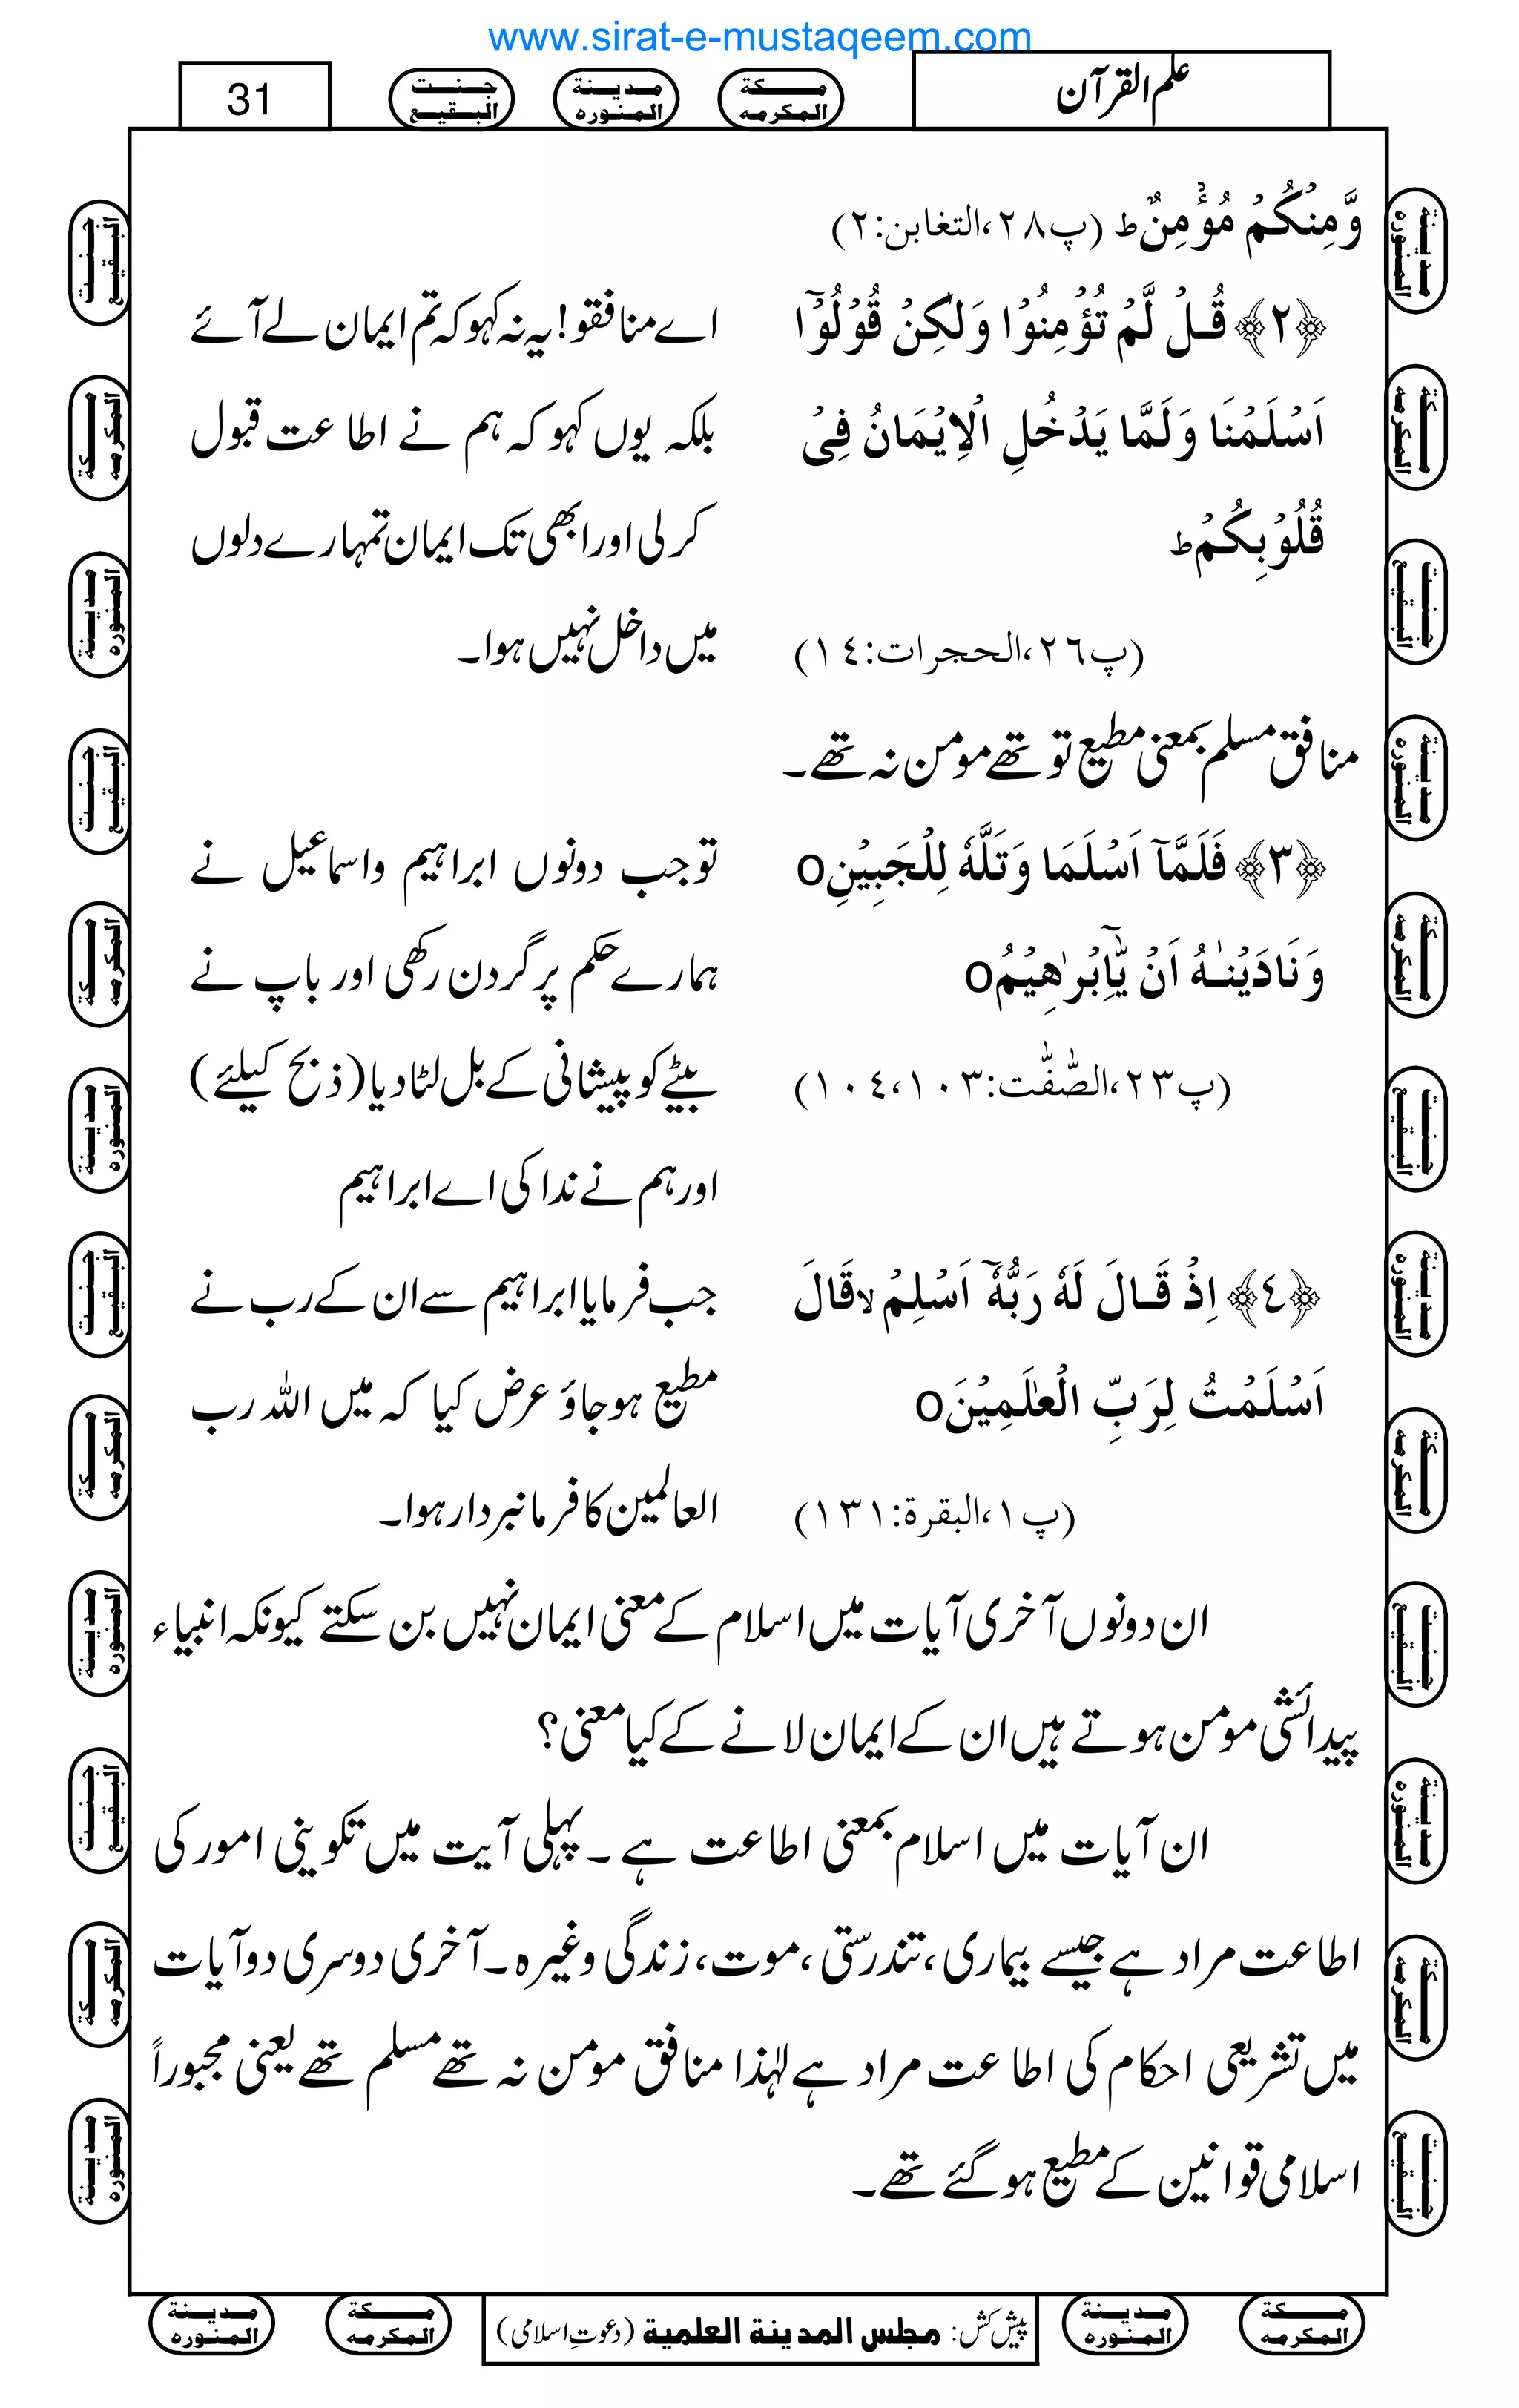 www.sirat-e-mustaqeem.com
علم القرآن
مكة المكرمه
مدينة المنوره
جنت البقيع
31
وَّمِنْكُمْ مُّؤْمِنٌ ط (پ۲۸،التغابن:۲)
﴿۲﴾ قُلْ لَّمْ تُؤْمِنُوْا وَلٰكِنْ قُوْلُوْٓا
اے منافقو! یہ نہ کہو کہ تم ایمان لے آئے
اَسْلَمْنَا وَلَمَّا يَدْخُلِ الْاِيْمَانُ فِىْ
بلکہ یوں کہو کہ ہم نے اطاعت قبول
قُلُوْبِكُمْ ط
کرلی اور ابھی تک ایمان تمہارے دلوں
(پ۲٦،الحجرات:۱٤)
میں داخل نہیں ہوا۔
منافق مسلم بمعنی مطیع تو تھے مومن نہ تھے۔
﴿۳﴾ فَلَمَّآ اَسْلَمَا وَتَلَّهٗ لِلْجَبِيْنِ o
توجب دونوں ابراہیم واسماعیل نے
وَنَادَيْنٰهُ اَنْ يّٰٓاِبْرٰهِيْمُ o
ہمارے حکم پر گردن رکھی اور باپ نے
(پ۲۳،الصّٰفّٰت:۱۰۳،۱۰٤)
بیٹے کو پیشانی کے بل لٹادیا (ذبح کیلئے)
اور ہم نے ندا کی اے ابراہیم
﴿٤﴾ اِذْ قَالَ لَهٗ رَبُّهٗٓ اَسْلِمْ لا قَالَ
جب فرمایا ابراہیم سے ان کے رب نے
اَسْلَمْتُ لِرَبِّ الْعٰلَمِيْنَ o
مطیع ہوجاؤ عرض کیا کہ میں اللہ رب
(پ۱،البقرة:۱۳۱)
العالمین کا فرمانبردار ہوا۔
ان دونوں آخری آیات میں اسلام کے معنی ایمان نہیں بن سکتے کیونکہ انبیاء
پیدائشی مومن ہوتے ہیں ان کے ایمان لانے کے کیا معنی؟
ان آیات میں اسلام بمعنی اطاعت ہے ۔ پہلی آیت میں تکوینی امور کی
اطاعت مراد ہے جیسے بیماری، تندرستی، موت، زندگی وغیرہ۔ آخری دوسری دو آیات
میں تشریعی احکام کی اطاعت مراد ہے لہٰذا منافق مومن نہ تھے مسلم تھے یعنی مجبوراً
اسلامی قوانین کے مطیع ہوگئے تھے۔
مكة المكرمه
مدينة المنوره
پیش کش: مجلس المدينة العلمية (دعوتِ اسلامی)
مكة المكرمه
مدينة المنوره